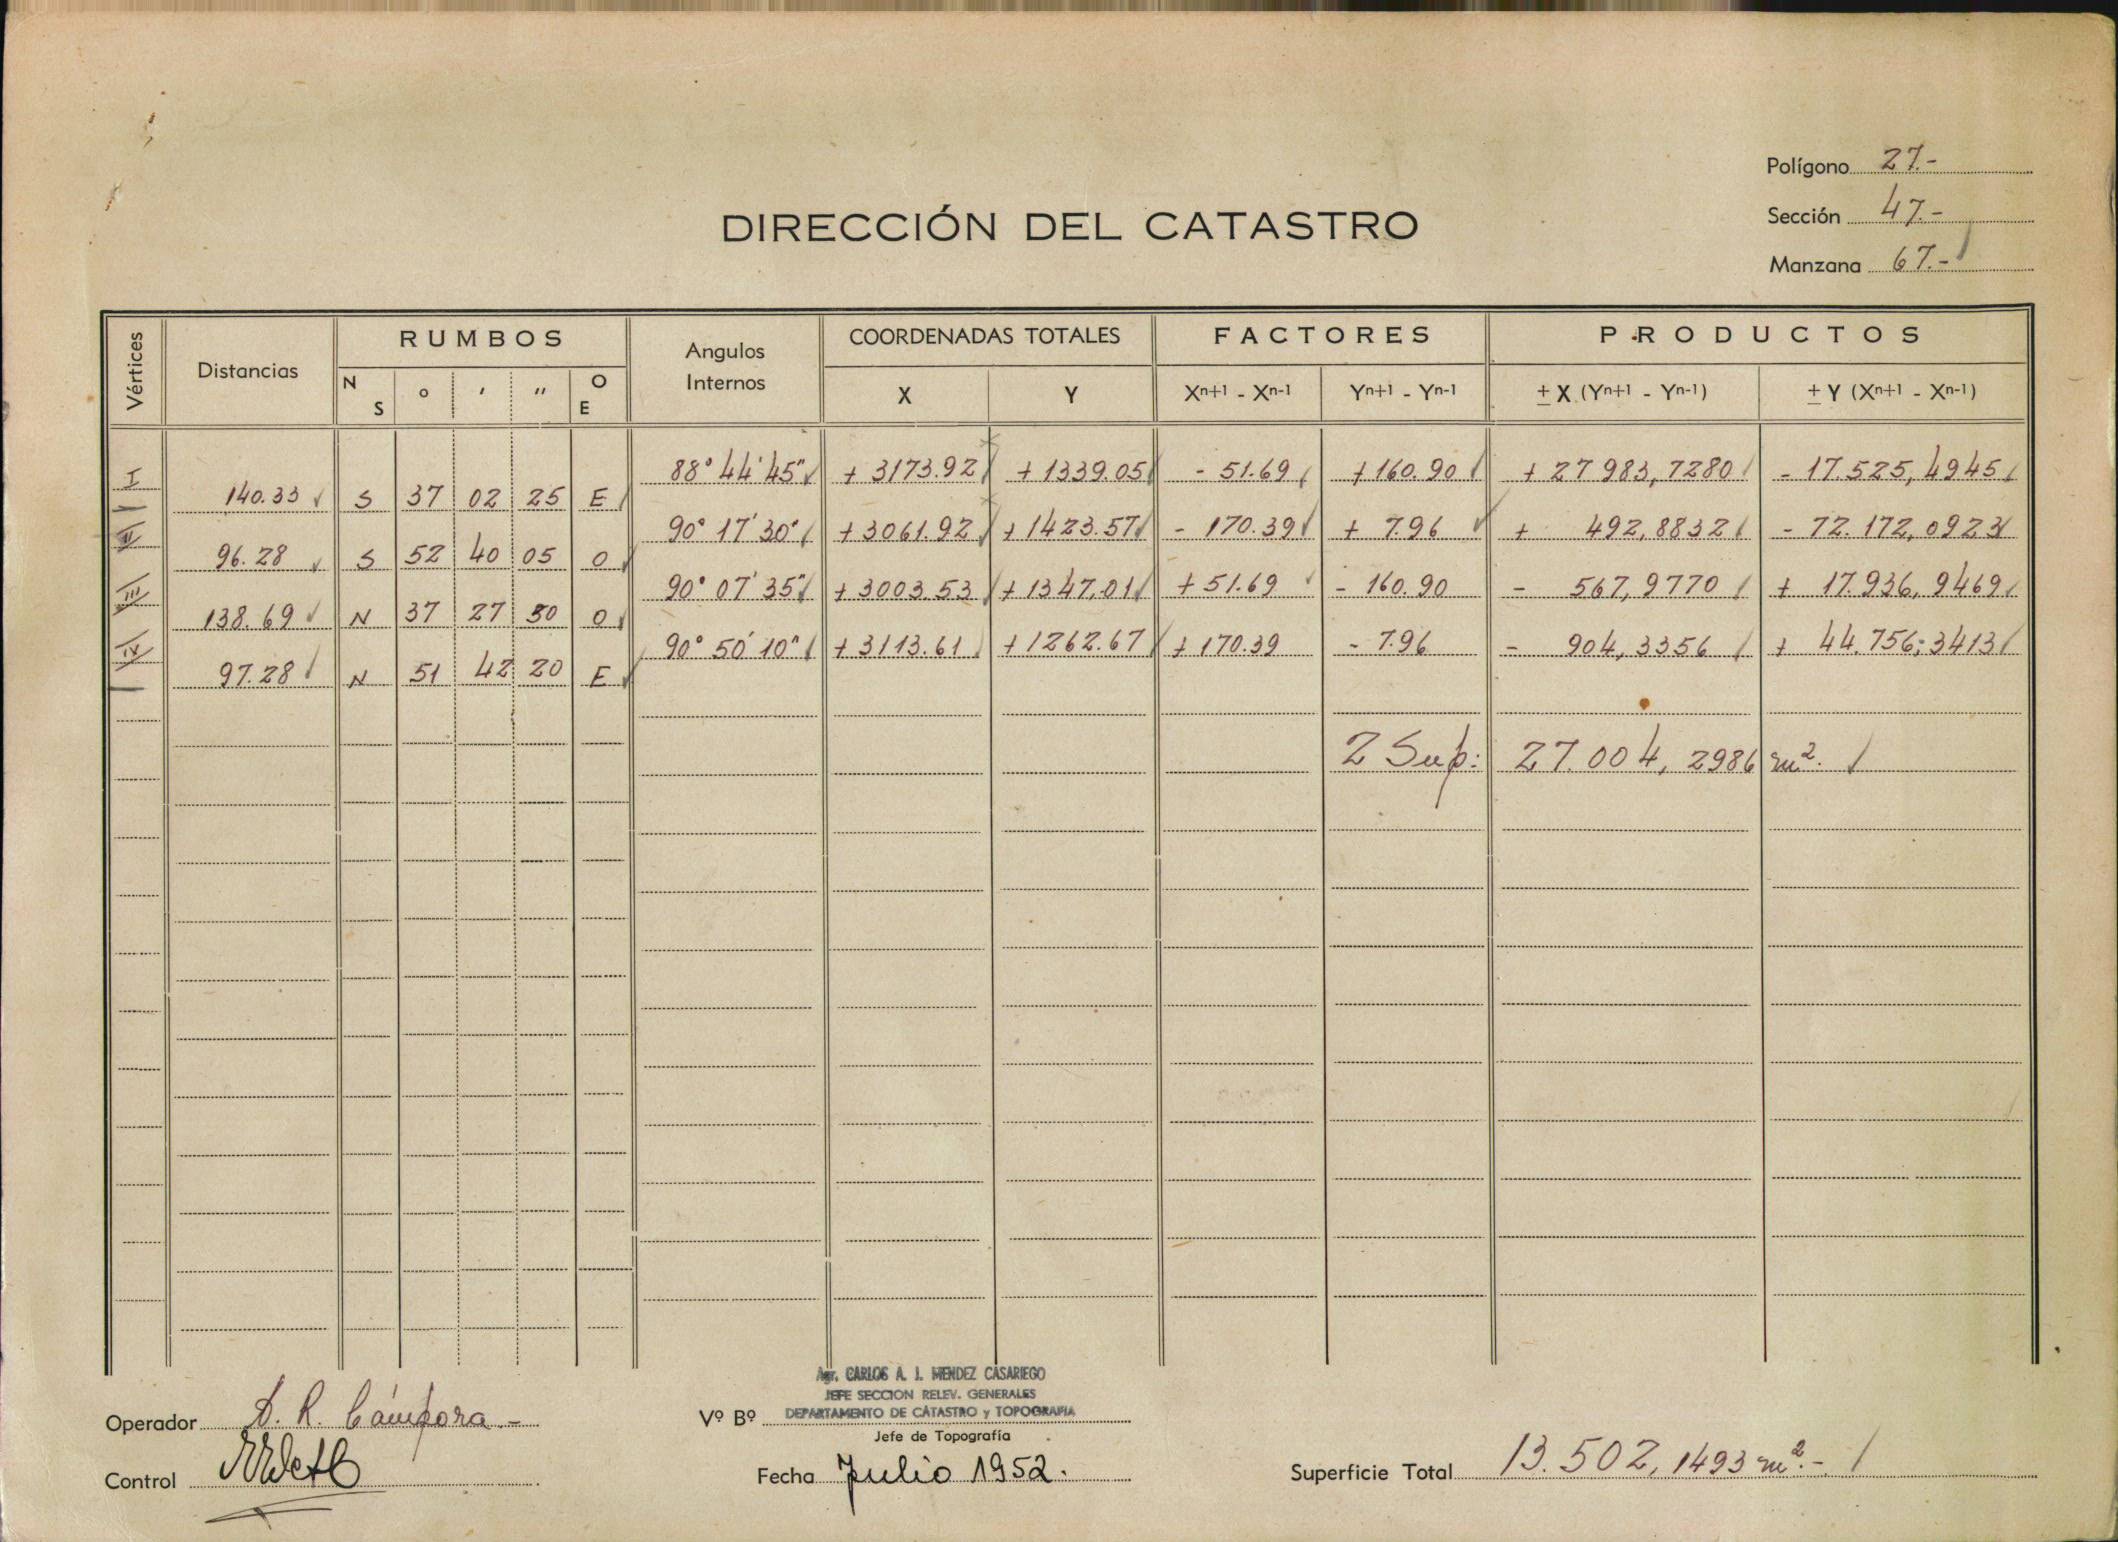 Polígono 27.-
Sección 47.-
Manzana 67.-
DIRECCIÓN DEL CATASTRO
Vértices Distancias RUMBOS N S ° ' " O E Angulos Internos COORDENADAS TOTALES X Y FACTORES Xn+1 - Xn-1 Yn+1 - Yn-1 PRODUCTOS ± X (Yn+1 - Yn-1) ± Y (Xn+1 - Xn-1)
I 88° 44' 45" + 3173.92 + 1339.05 - 51.69 + 160.90 + 27 983,7280 - 17.525,4945
140.33 S 37 02 25 E
II 90° 17' 30" + 3061.92 + 1423.57 - 170.39 + 7.96 + 492,8832 - 72.172,0923
96.28 S 52 40 05 O
III 90° 07' 35" + 3003.53 + 1347,01 + 51.69 - 160.90 - 567,9770 + 17.936,9469
138.69 N 37 27 30 O
IV 90° 50' 10" + 3113.61 + 1262.67 + 170.39 - 7.96 - 904,3356 + 44.756;3413
97.28 N 51 42 20 E
I
2 Sup: 27.004,2986 m².
Agr. CARLOS A. J. MENDEZ CASARIEGO
JEFE SECCION RELEV. GENERALES
DEPARTAMENTO DE CATASTRO y TOPOGRAFIA
Operador D. R. Cámpora.-
Vº Bº
Jefe de Topografía
Control
Fecha Julio 1952.
Superficie Total 13.502,1493 m².-